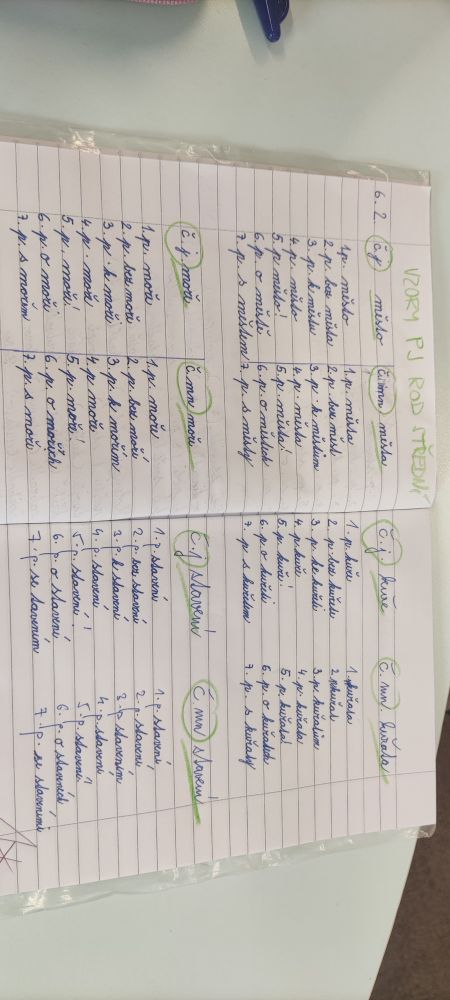 VZORY PJ ROD STŘEDNÍ
6. 2. č.j město
1. p. město
2. p. bez města
3. p. k městu
4. p. město
5. p. město!
6. p. o městě
7. p. s městem
č. mn města
1. p. města
2. p. bez měst
3. p. k městům
4. p. města
5. p. města!
6. p. o městech
7. p. s městy
č. j moře
1. p. moře
2. p. bez moře
3. p. k moři
4. p. moře
5. p. moře!
6. p. o moři
7. p. s mořem
č. mn moře
1. p. moře
2. p. bez moří
3. p. k mořím
4. p. moře
5. p. moře!
6. p. o mořích
7. p. s moři
č. j kuře
1. p. kuře
2. p. bez kuřete
3. p. ke kuřeti
4. p. kuře
5. p. kuře!
6. p. o kuřeti
7. p. s kuřetem
č. mn kuřata
1. kuřata
2. kuřat
3. p. kuřatům
4. p. kuřata
5. p. kuřata!
6. p. o kuřatech
7. p. s kuřaty
č. j stavení
1. p. stavení
2. p. bez stavení
3. p. k stavení
4. p. stavení
5. p. stavení!
6. p. o stavení
7. p. se stavením
č. mn stavení
1. p. stavení
2. p. stavení
3. p. stavením
4. p. stavení
5. p. stavení!
6. p. o staveních
7. p. se staveními